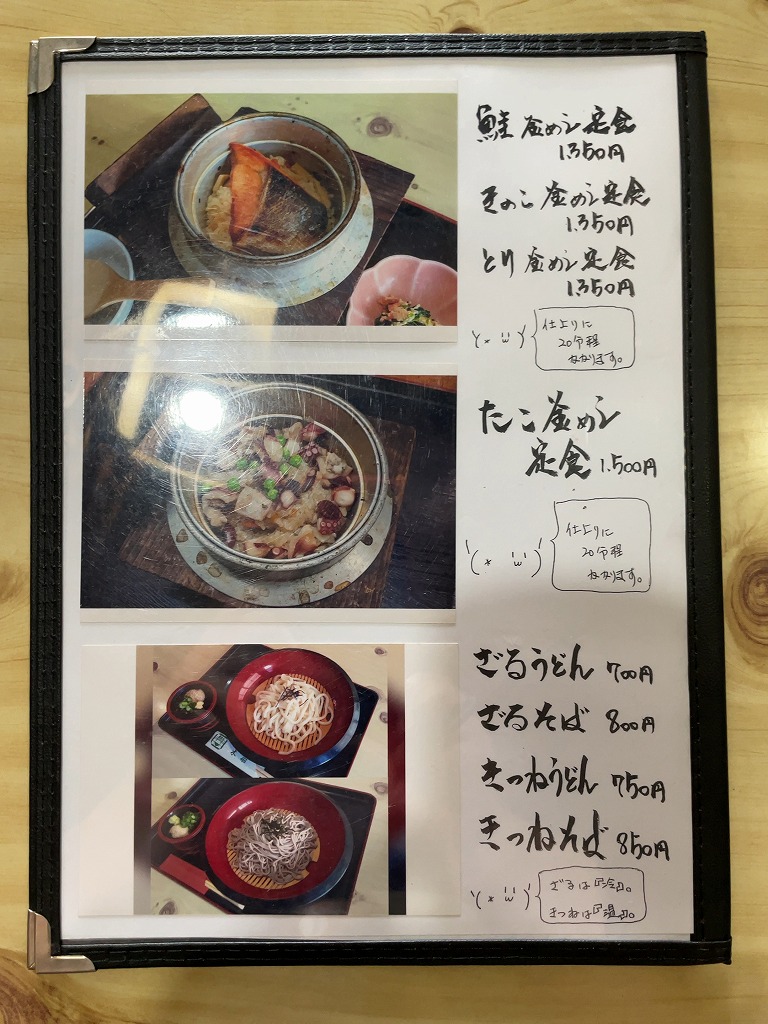 鮭釜めし定食
1.350円
きのこ釜めし定食
1.350円
とり釜めし定食
1.350円
仕上りに
20分程
かかります。
たこ釜めし
定食 1.500円
仕上りに
20分程
かかります。
ざるうどん 700円
ざるそば 800円
きつねうどん 750円
きつねそば 850円
ざるは『冷』。
きつねは『温』。